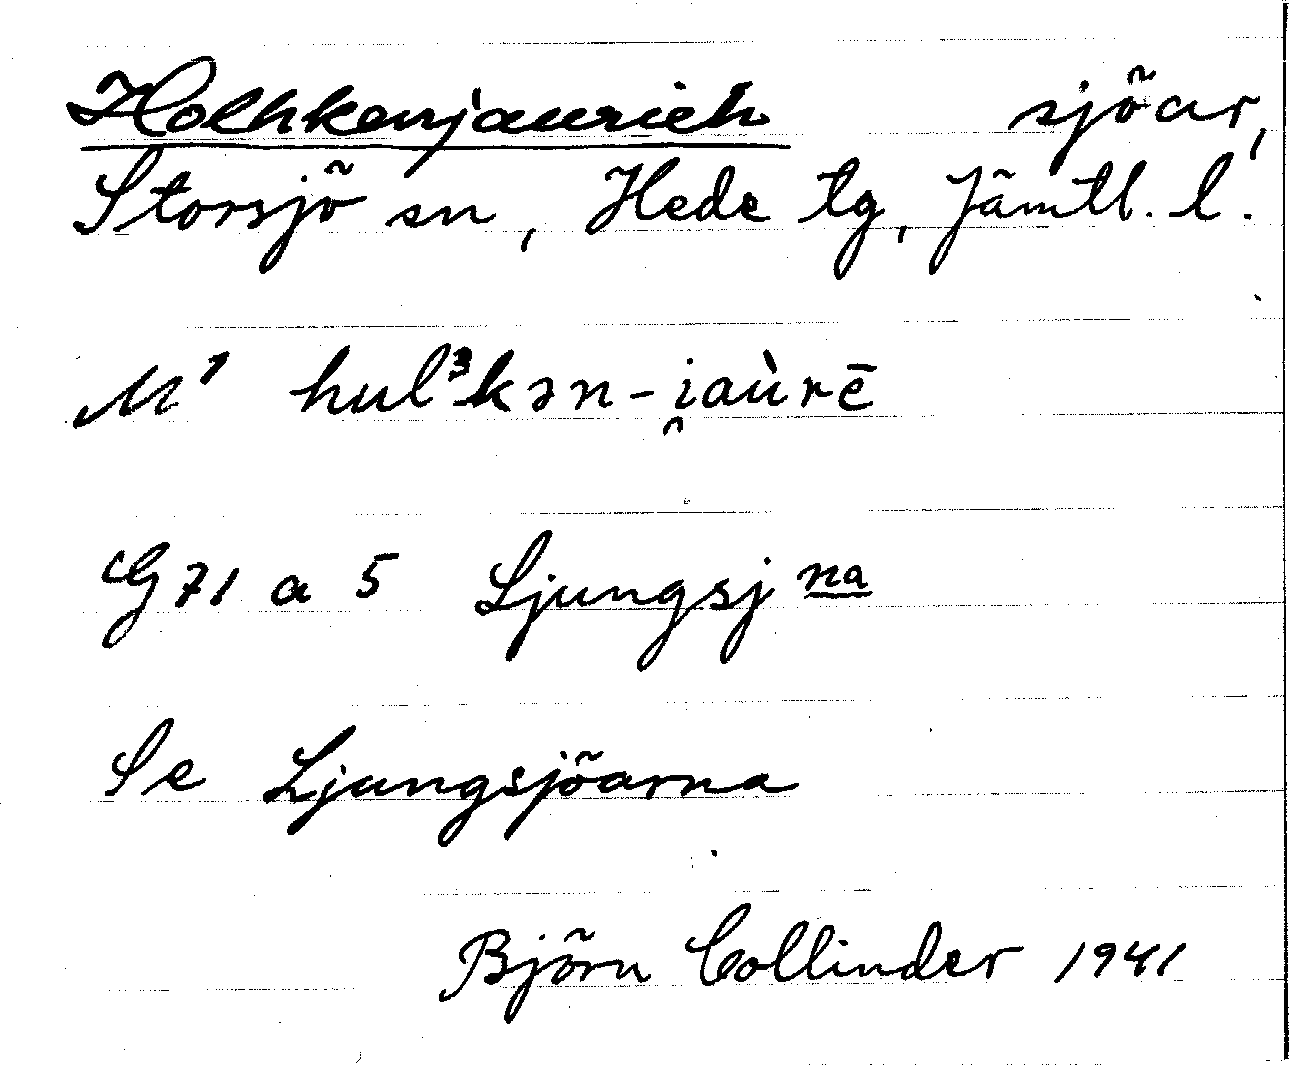 Holhkenjaurieh sjöar,
Storsjö sn, Hede tg, Jämtl. l.
M¹ hul³kən-i̯aùrē
G 71 a 5 Ljungsj na
Se Ljungsjöarna
Björn Collinder 1941